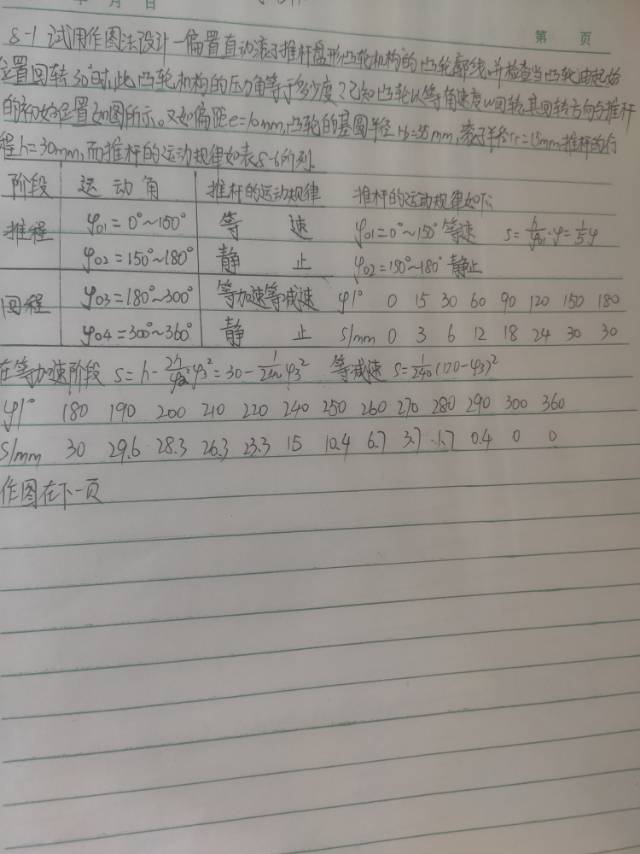 年 月 日
第 页
8-1 试用作图法设计一偏置直动滚子推杆盘形凸轮机构的凸轮廓线,并检查当凸轮由起始
位置回转30°时,此凸轮机构的压力角等于多少度?已知凸轮以等角速度ω回转,其回转方向与推杆
的初始位置如图所示。又知偏距e=10mm,凸轮的基圆半径 =35mm,滚子半径rr=15mm推杆的行
程h=30mm,而推杆的运动规律如表8-6所列
阶段 运动角 推杆的运动规律 推杆的运动规律如下:
推程 φ01=0°~150° 等 速 φ01=0°~150°等速 s=h/φ01·φ=1/5φ
φ02=150°~180° 静 止 φ02=150°~180°静止
回程 φ03=180°~300° 等加速等减速 φ/° 0 15 30 60 90 120 150 180
φ04=300°~360° 静 止 s/mm 0 3 6 12 18 24 30 30
在等加速阶段 s=h-2h/ φ3²=30-1/240φ3² 等减速 s=1/240(120-φ3)²
φ/° 180 190 200 210 220 240 250 260 270 280 290 300 360
s/mm 30 29.6 28.3 26.3 23.3 15 10.4 6.7 3.7 1.7 0.4 0 0
作图在下一页